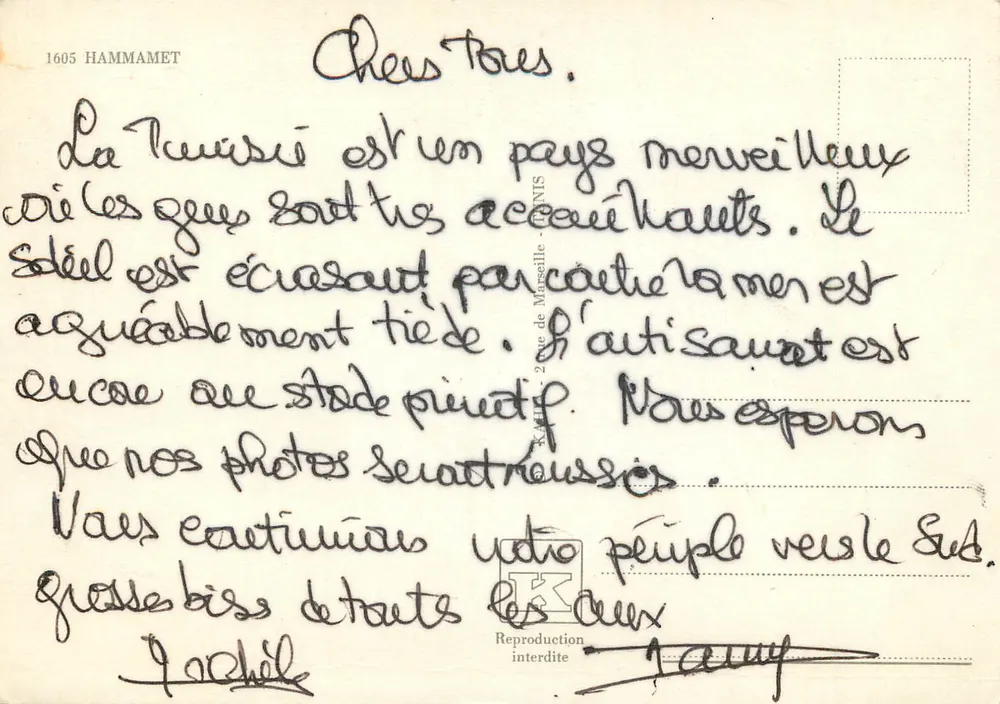 1605 HAMMAMET
Chers Tous.
La Tunisie est un pays merveilleux
où les gens sont très accueillants. Le
Soleil est écrasant par contre la mer est
agréablement tiède. L'artisanat est
encore au stade primitif. Nous esperons
que nos photos seront réussies.
Nous continuons notre périple vers le Sud.
grosses bises de toutes les deux
Danny
Rue de Marseille - TUNIS
K
Reproduction
interdite